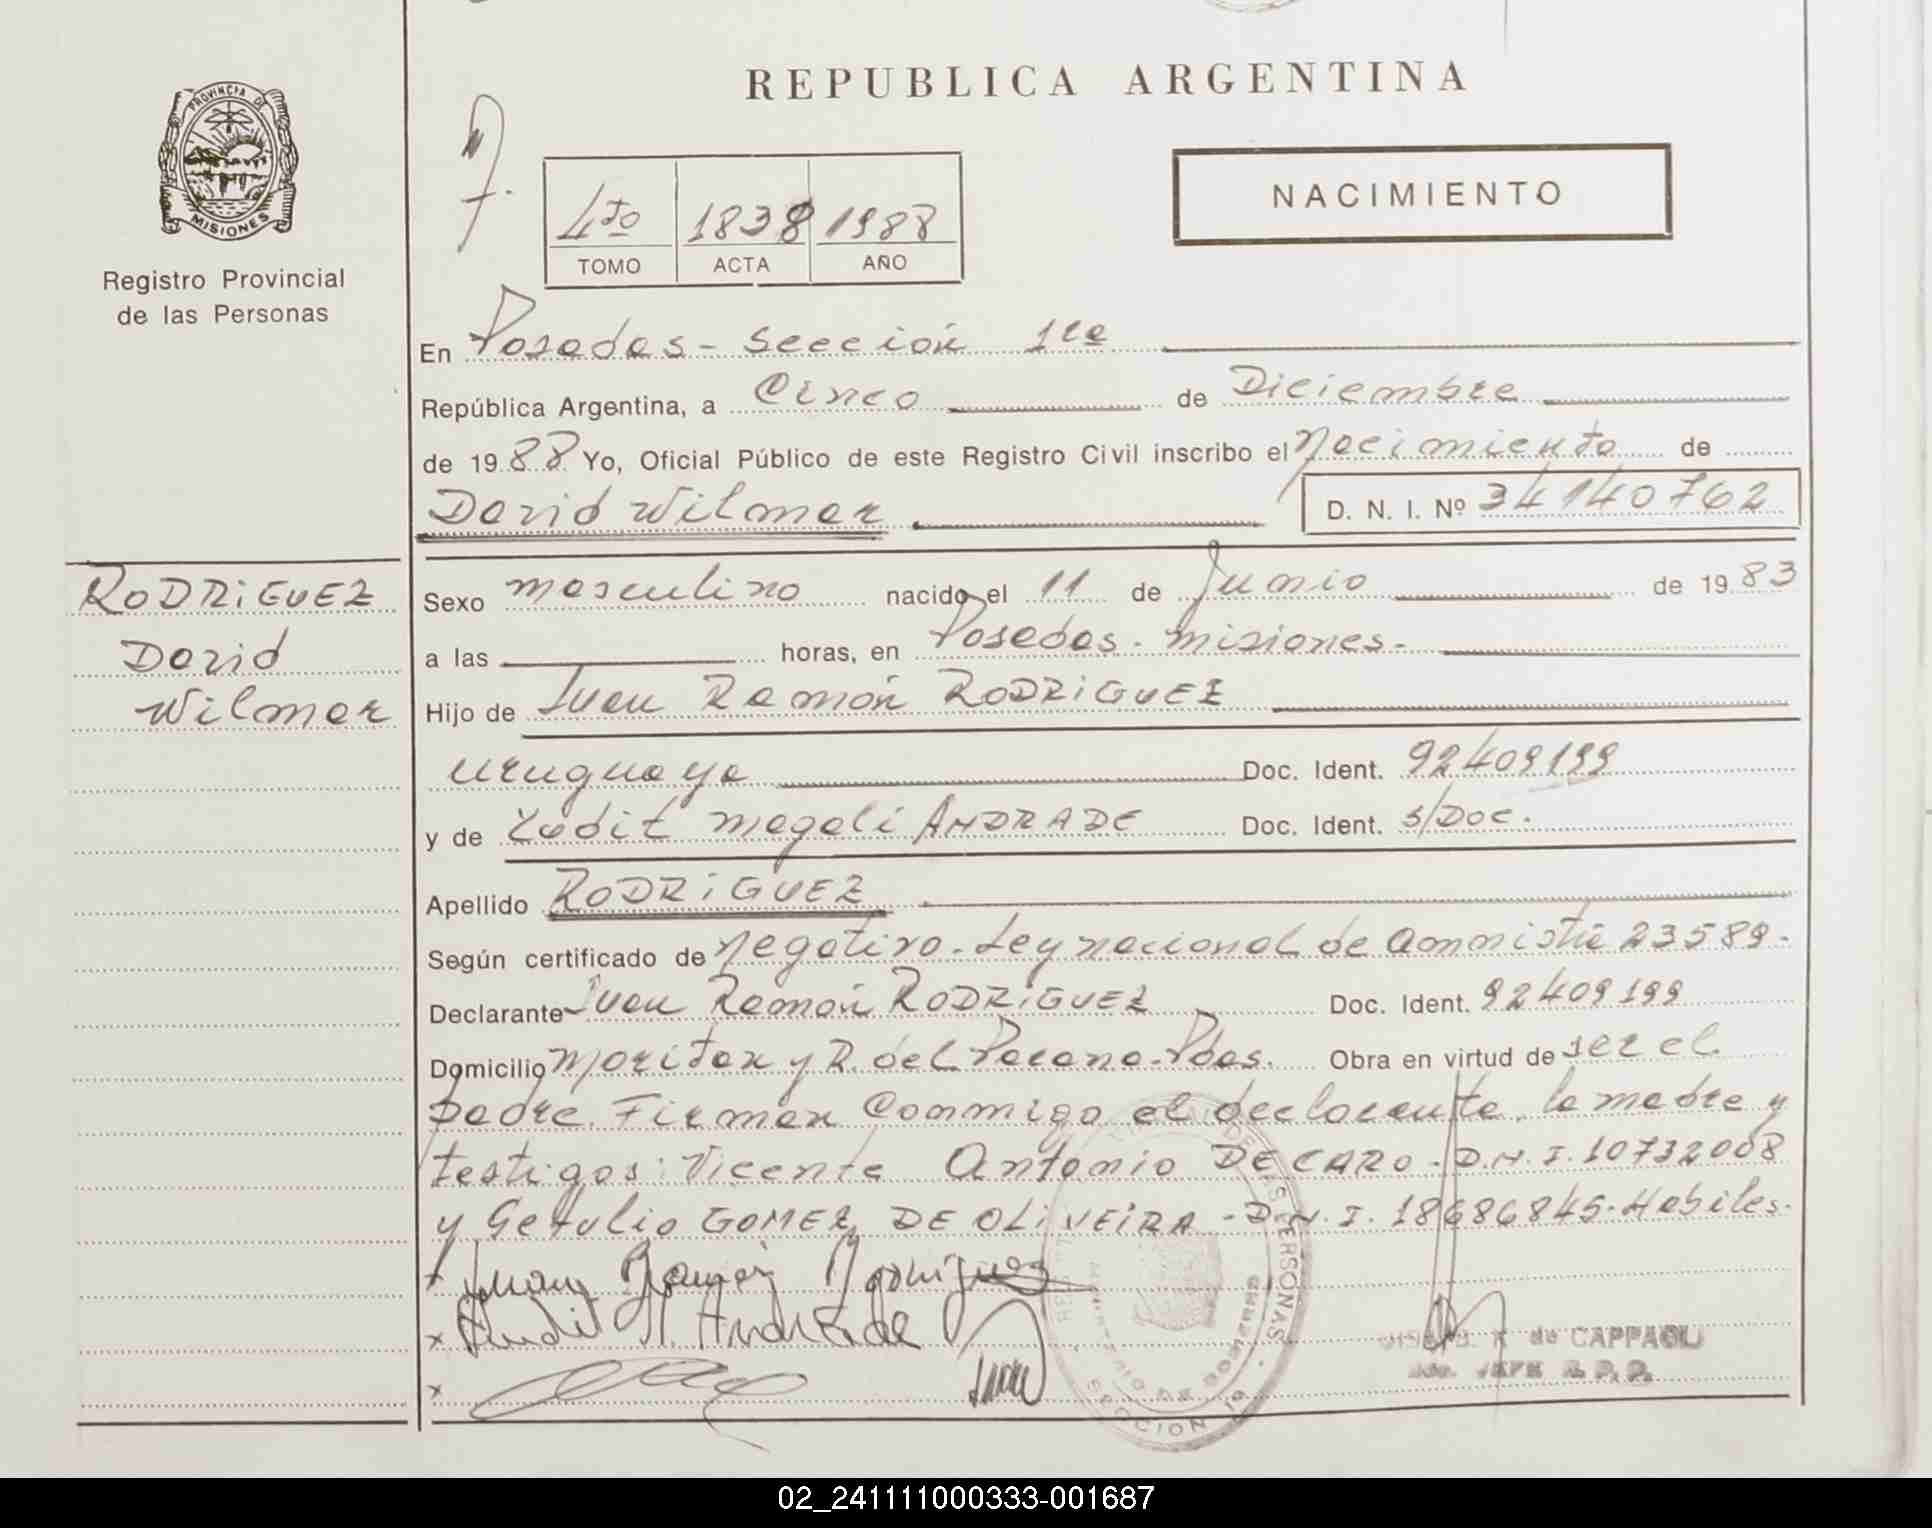 REPUBLICA ARGENTINA
PROVINCIA DE MISIONES
Registro Provincial
de las Personas
4to 1838 1988
TOMO ACTA AÑO
NACIMIENTO
En Posadas - Sección 1ra
República Argentina, a Cinco de Diciembre
de 1988 Yo, Oficial Público de este Registro Civil inscribo el Nacimiento de
David Wilmar D. N. I. Nº 34140762
RODRIGUEZ
David
Wilmar
Sexo masculino nacido el 11 de Junio de 1983
a las horas, en Posadas - misiones -
Hijo de Juan Ramón RODRIGUEZ
uruguayo Doc. Ident. 92409199
y de Yudit magali ANDRADE Doc. Ident. s/Doc.
Apellido RODRIGUEZ
Según certificado de Negativo - Ley nacional de amnistía 23589 -
Declarante Juan Ramón RODRIGUEZ Doc. Ident. 92409199
Domicilio y R. del - Pdas. Obra en virtud de ser el
padre. Firman Conmigo el declarante, la madre y
testigos: Vicente Antonio DE CARO - D.N.I. 10732008
y Getulio GOMEZ DE OLIVEIRA - D.N.I. 18686845 - Habiles -
x Juan Ramón Rodriguez
x Yudit M. Andrade
x
de CAPPAOLI
JEFE R. P. P.
DE LAS PERSONAS
SECCION 1a
02_241111000333-001687